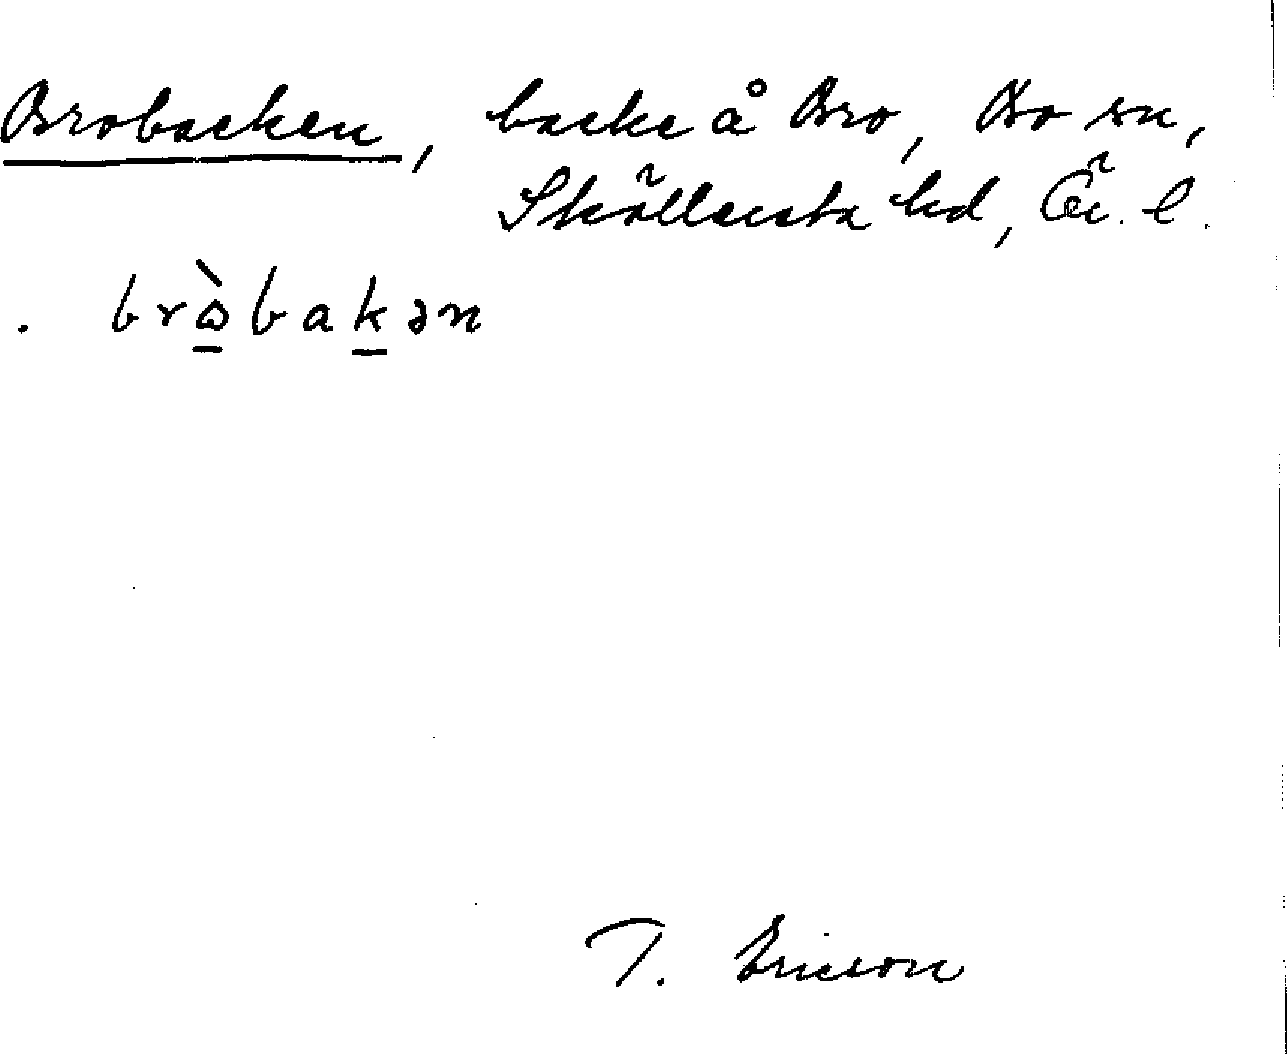 Brobacken, backe å Bro, Bo sn,
Sköllersta hd, Ör. l.
. brὼbakən
T. Ericson